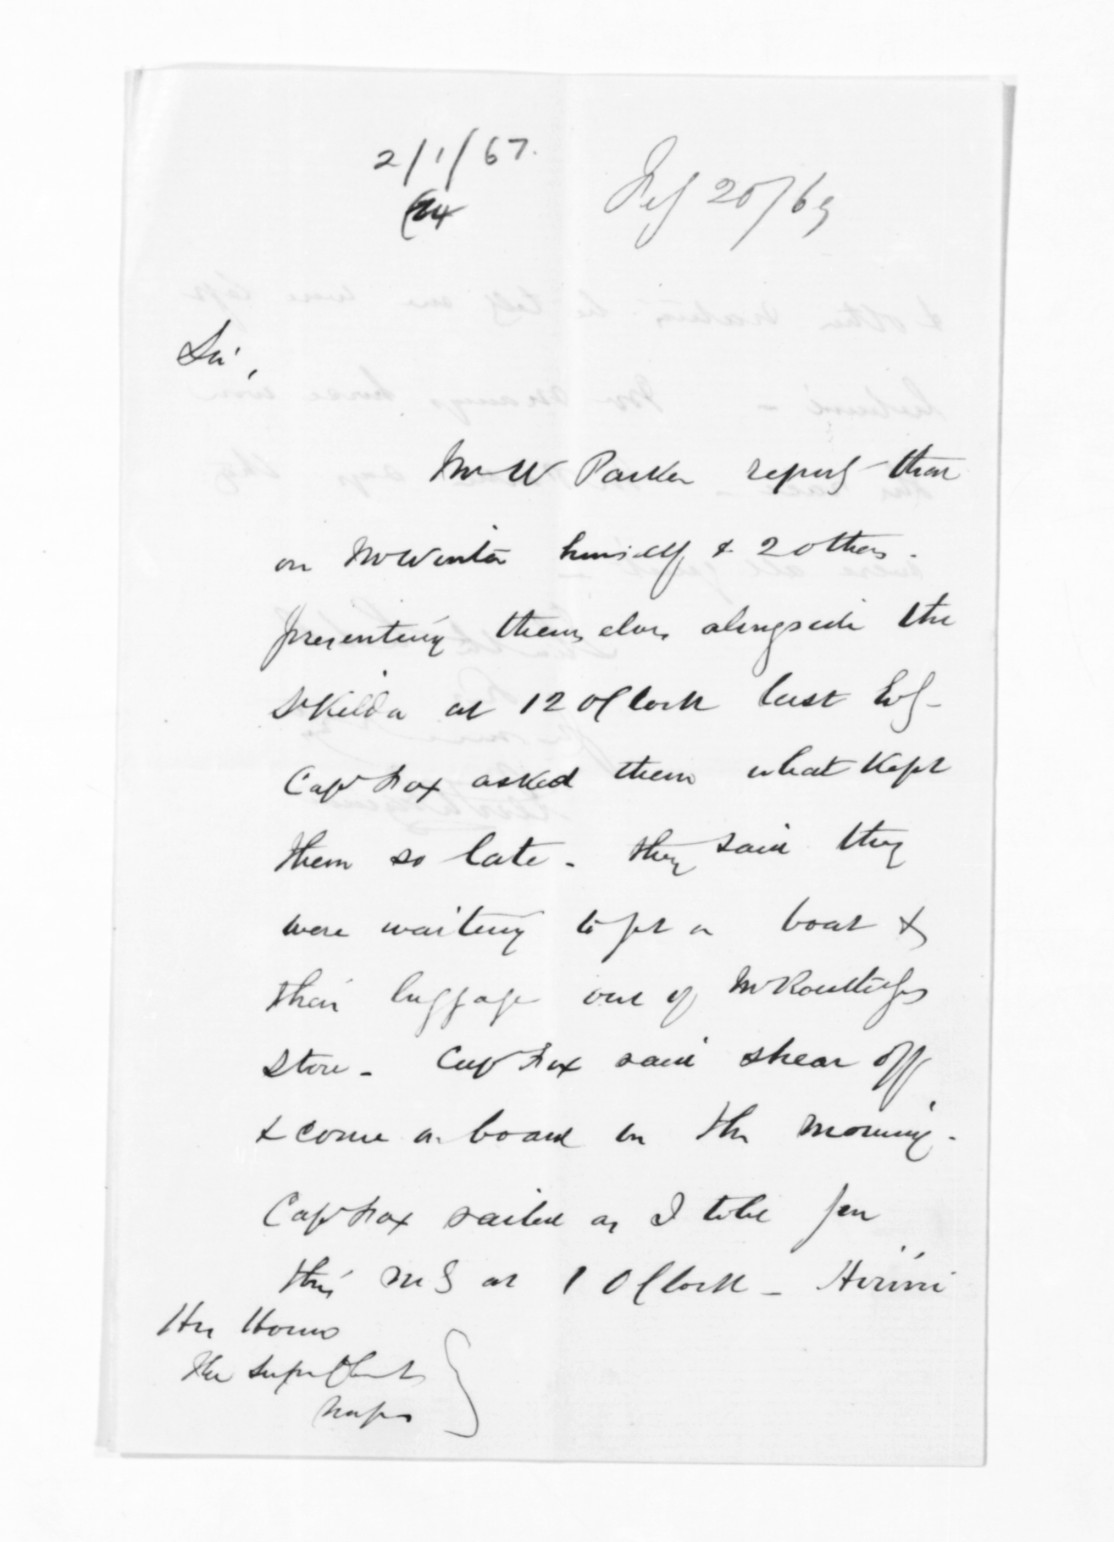 2/1/67.
Sir,
Mr W Parker reports that
on Mr Winter himself & 2 others.
presenting themselves alongside the
St Kilda at 12 O Clock last Evg -
Capt Fox asked them what kept
them so late - they said they
were waiting to get a boat &
their luggage out of Mr Routledges
store - Capt Fox said shear off
& come on board in the morning -
Capt Fox sailed as I tolled you
this mg at 1 O Clock -
His Honor
the Superintendent
Napier